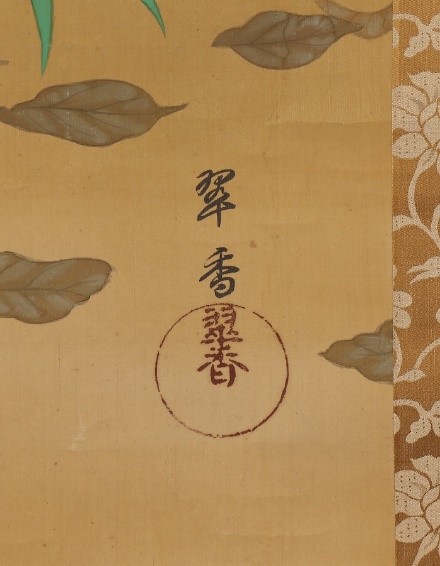 翠香
翠香